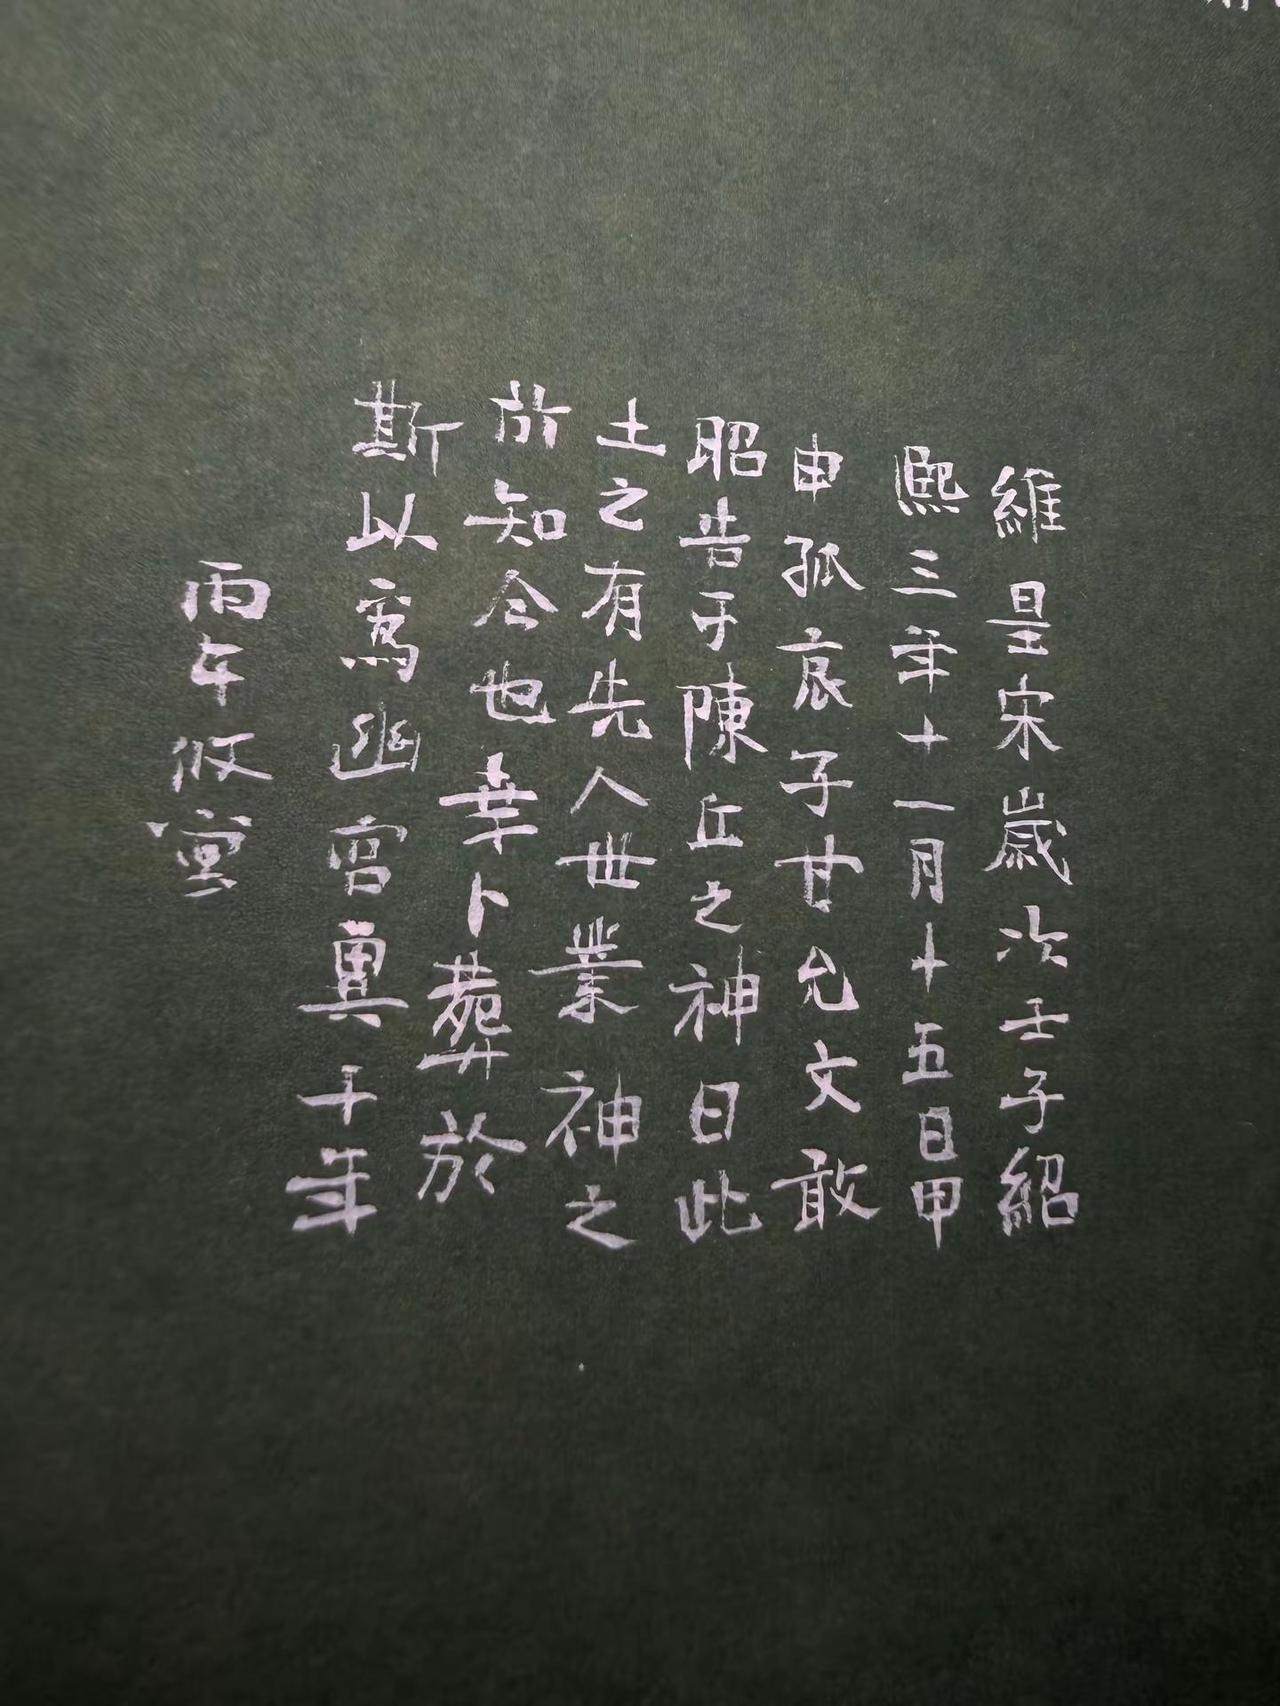 維皇宋歲次壬子紹
熙三年十一月十五日甲
申孤哀子甘允文敢
昭告于陳丘之神日此
土之有先人世業神之
所知今也幸卜葬於
斯以為幽宮奠千年
丙午仮堂